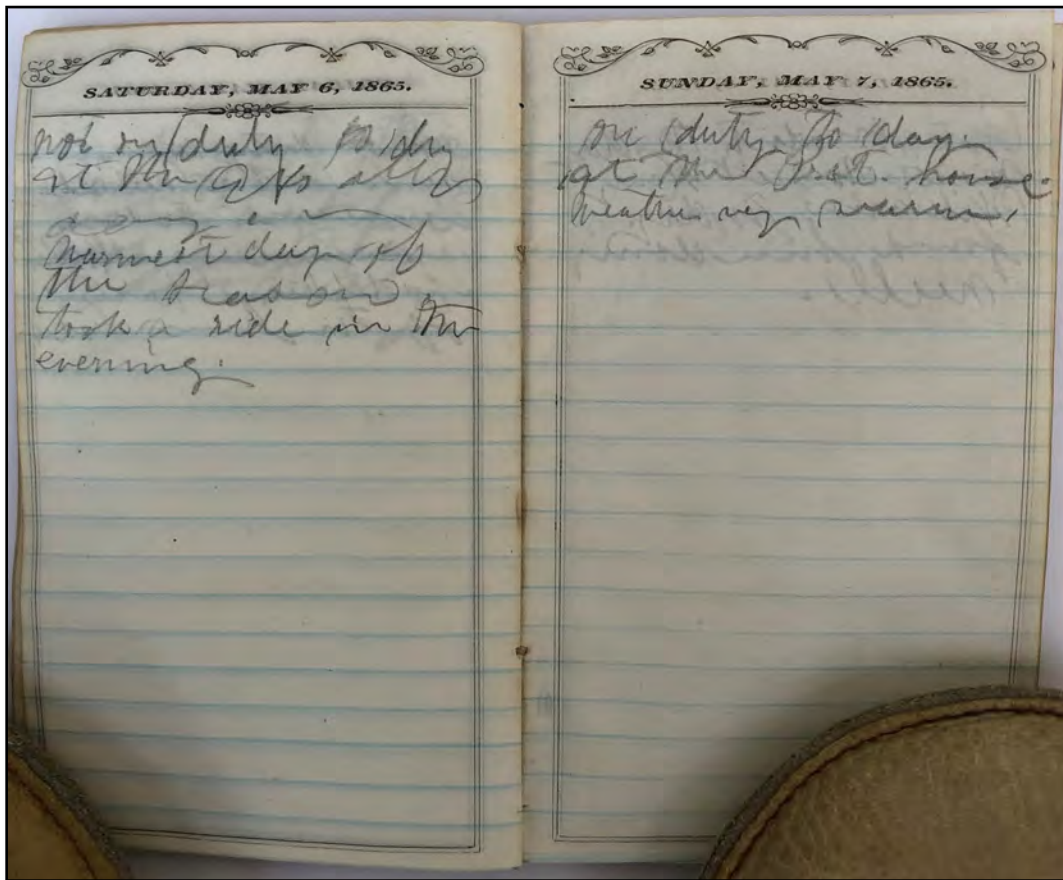 SATURDAY, MAY 6, 1865.
not on duty to day
at the
warmest day of
the season.
took a ride in the
evening.
SUNDAY, MAY 7, 1865.
on duty to day.
at the house.
weather very warm.